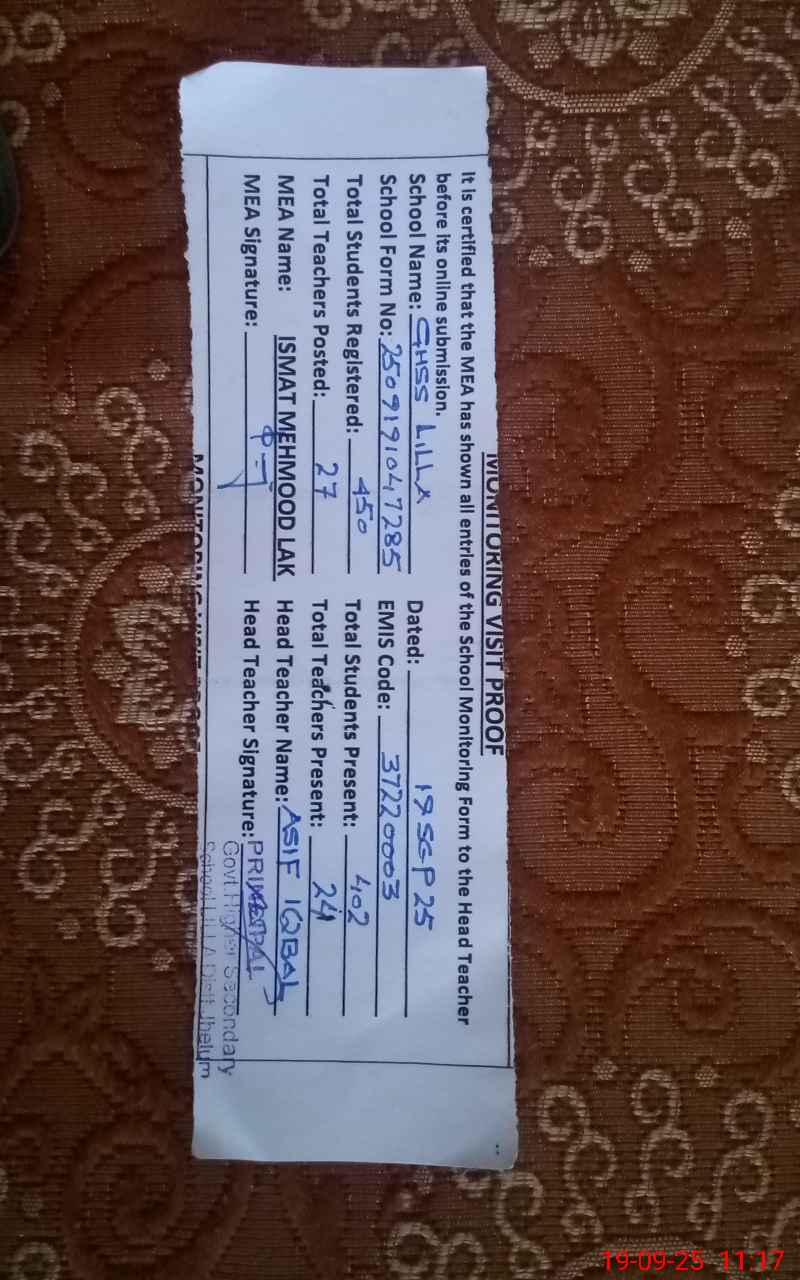 MONITORING VISIT PROOF
It is certified that the MEA has shown all entries of the School Monitoring Form to the Head Teacher
before its online submission.
School Name: GHSS LILLA Dated: 19 SEP 25
School Form No: 2509191047285 EMIS Code: 37220003
Total Students Registered: 450 Total Students Present: 402
Total Teachers Posted: 27 Total Teachers Present: 24
MEA Name: ISMAT MEHMOOD LAK Head Teacher Name: ASIF IQBAL
MEA Signature: Head Teacher Signature: PRINCIPAL
Govt. Higher Secondary
School LILLA Distt. Jhelum
MONITORING VISIT PROOF
19-09-25 11:17